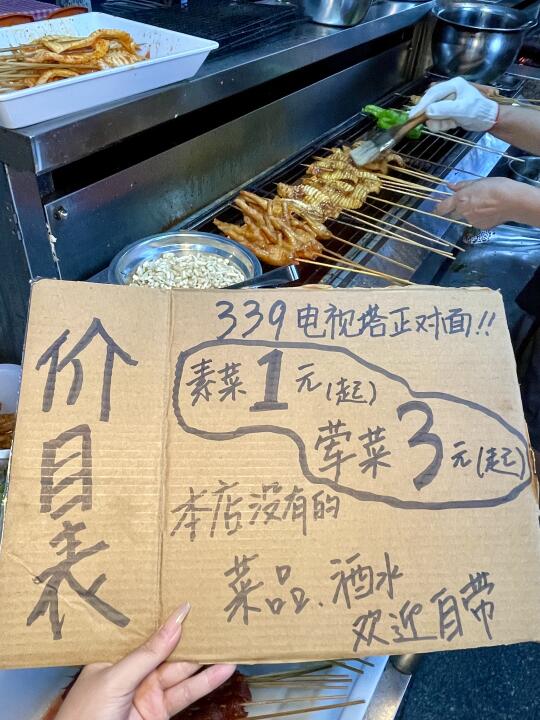 价目表
339电视塔正对面!!
素菜1元(起)
荤菜3元(起)
本店没有的
菜品、酒水
欢迎自带